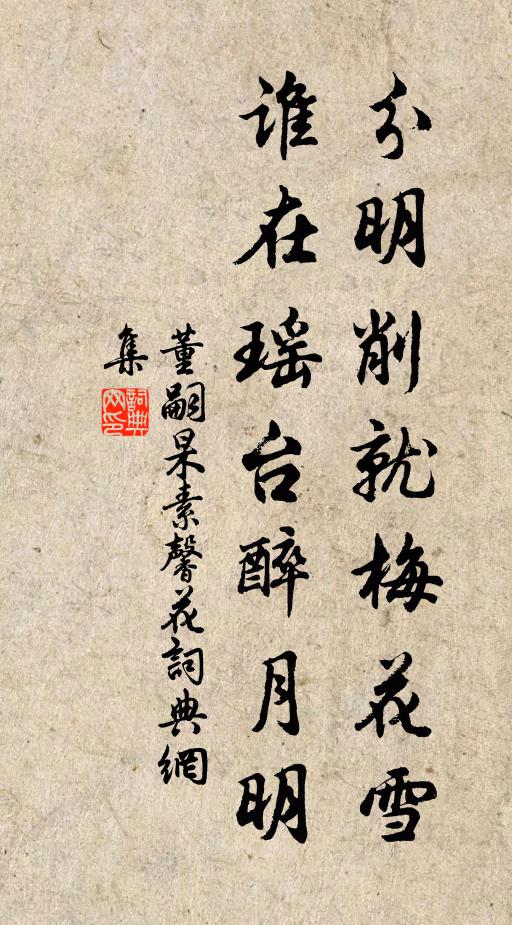 分明削就梅花雪
谁在瑶台醉月明
董嗣杲素馨花詞典網
集
詞典網印